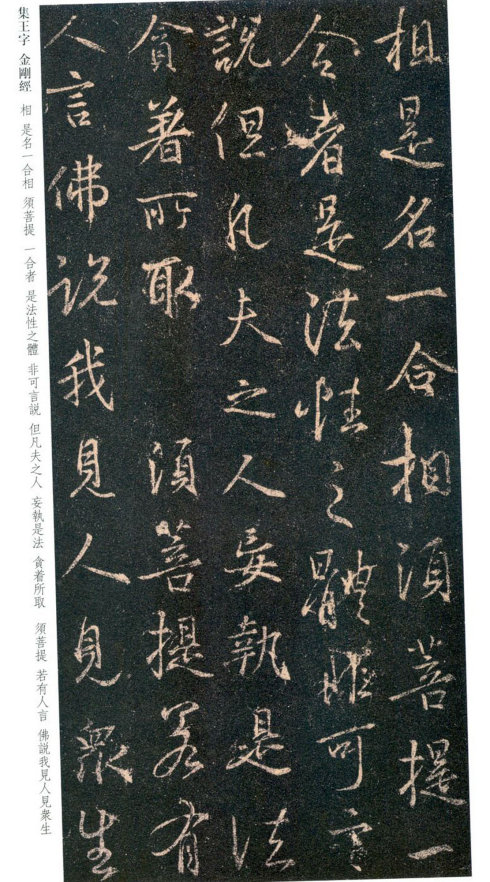 相是名一合相須菩提一
合者是法性之體非可言
說但凡夫之人妄執是法
貪著所取 須菩提若有
人言佛說我見人見衆生
集王字 金剛經 相 是名一合相 須菩提 一合者 是法性之體 非可言説 但凡夫之人 妄執是法 貪着所取 須菩提 若有人言 佛説我見人見衆生